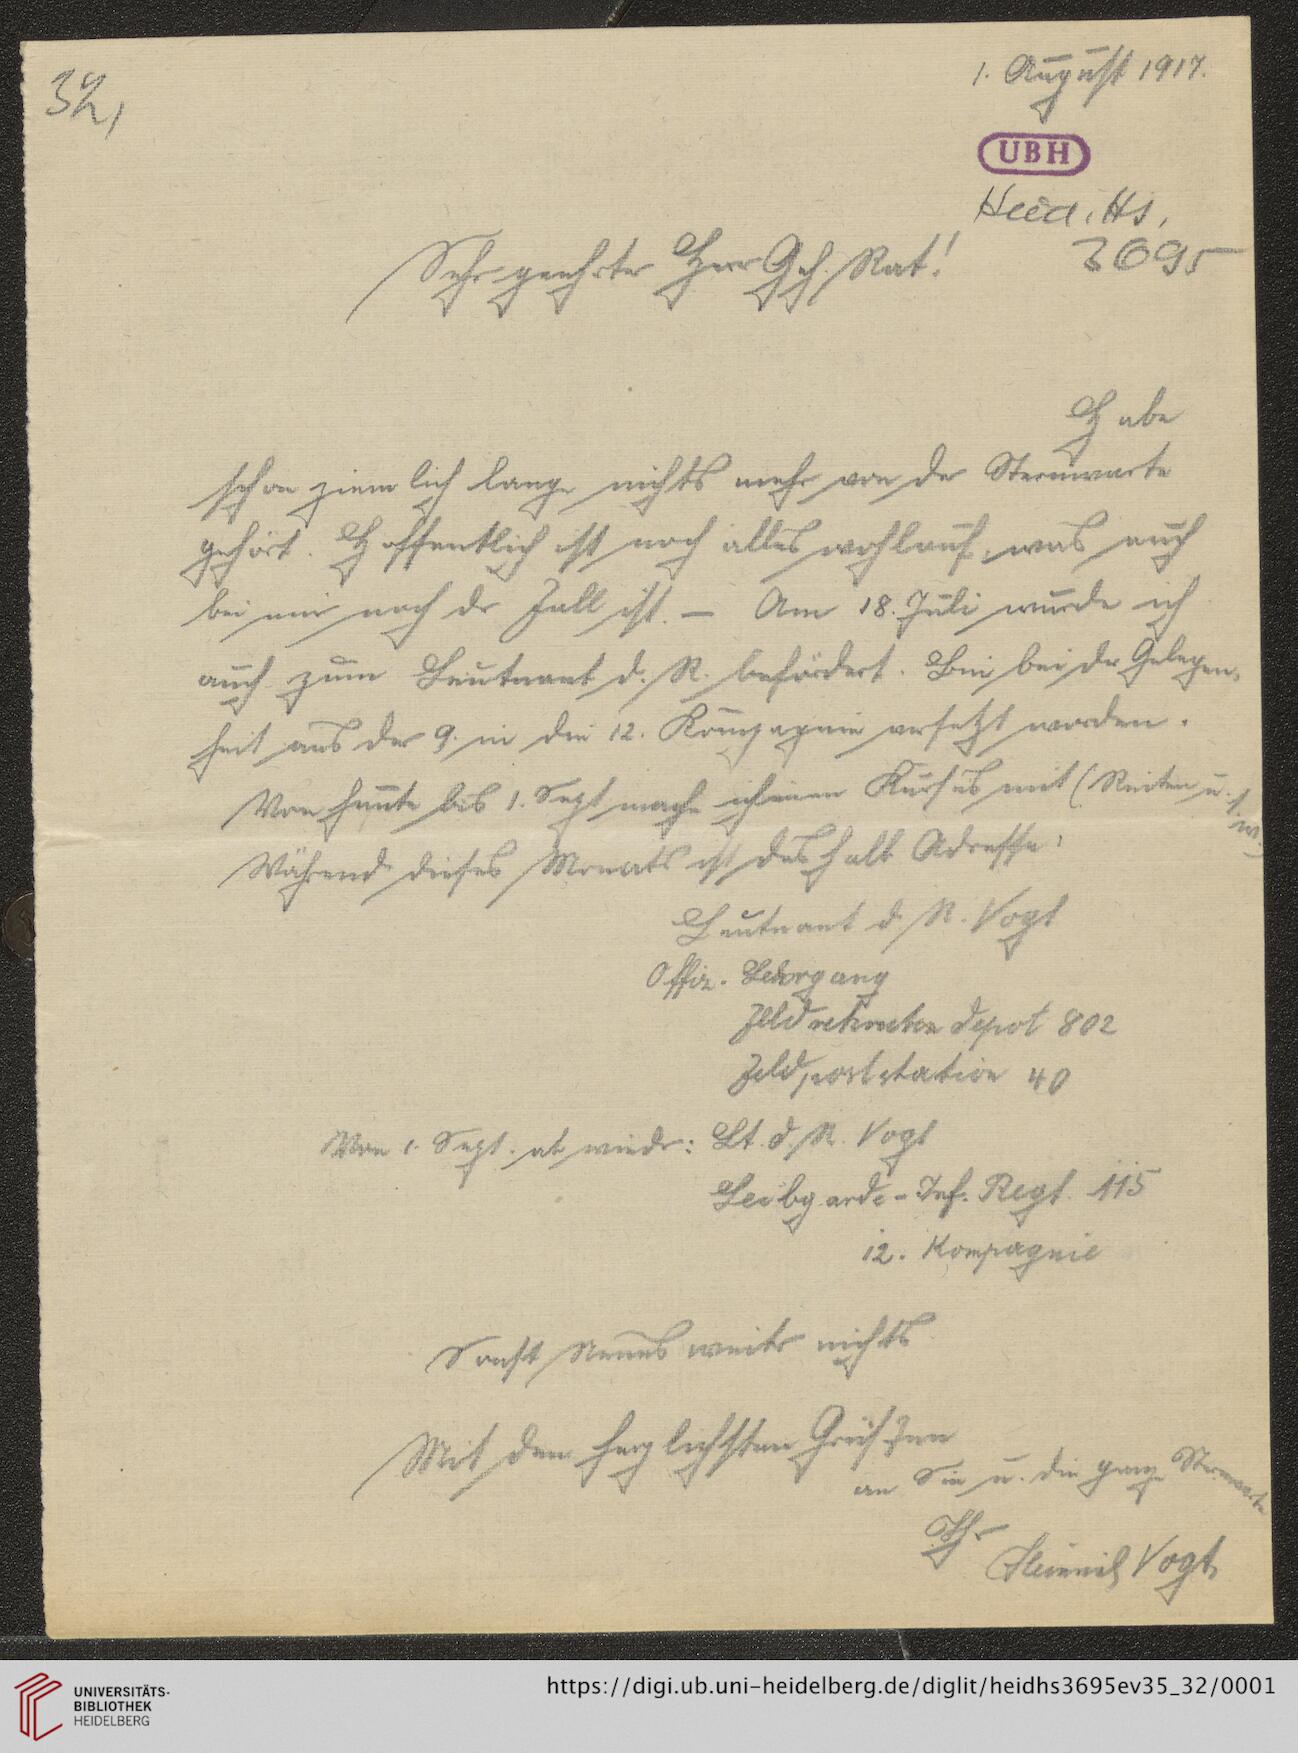 32,
1. August 1917.
UBH
Heid. Hs.
3695
Sehr geehrter Herr Geh. Rat!
Habe
schon ziemlich lange nichts mehr von der Sternwarte
gehört. Hoffentlich ist noch alles wohlauf, was auch
bei mir noch der Fall ist. — Am 18. Juli wurde ich
auch zum Leutnant d. R. befördert. Bin bei der Gelegen-
heit aus der 9. in die 12. Kompagnie versetzt worden.
Von heute bis 1. Sept mache ich einen Kursus mit (Reiten u. s. w.)
Während dieses Monats ist deshalb Adresse:
Leutnant d. R. Vogt
Offiz. Lehrgang
Feldrekruten depot 802
Feldpoststation 40
Von 1. Sept. ab wieder: Lt. d. R. Vogt
Leibgarde-Inf. Regt. 115
12. Kompagnie
Sonst Neues weiter nichts
Mit den herzlichsten Grüßen
an Sie u. die ganze Sternwarte
Ihr
Heinrich Vogt
UNIVERSITÄTS-
BIBLIOTHEK
HEIDELBERG
https://digi.ub.uni-heidelberg.de/diglit/heidhs3695ev35_32/0001